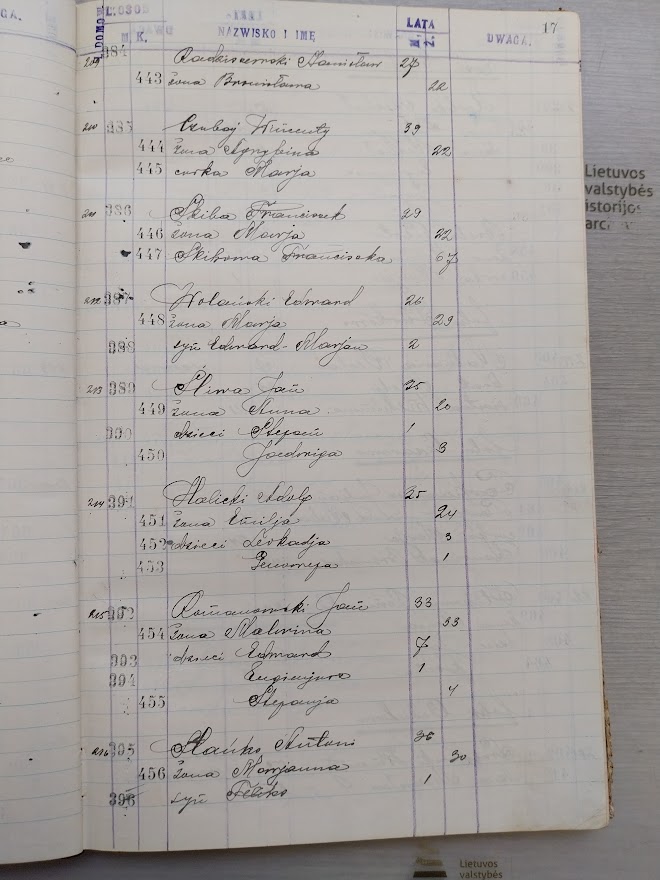 GA.
17
L. DOMU L. OSÓB
M. K. NAZWISKO I IMIĘ LATA M. Ż. UWAGA.
209 384 Radziszewski Stanisław 27
443 żona Bronisława 22
210 385 Wincenty 39
444 żona 22
445 córka Marja
211 386 Skiba Franciszek 29
446 żona Marja 22
447 Skibowa Franciszka 67
212 387 Wolański Edward 26
448 żona Marja 29
388 syn Edward-Marjan 2
213 389 Śliwa Jan 25
449 żona Anna 20
390 dzieci Stefan 1
450 Jadwiga 3
214 391 Halicki Adolf 25
451 żona Emilja 24
452 dzieci Leokadja 3
453 Genowefa 1
215 392 Romanowski Jan 33
454 żona Malwina 33
393 dzieci Edward 7
394 Eugenjusz 1
455 Stefanja 4
216 395 Antoni 36
456 żona Marjanna 30
396 syn Feliks 1
Lietuvos
valstybės
istorijos
Lietuvos
valstybės